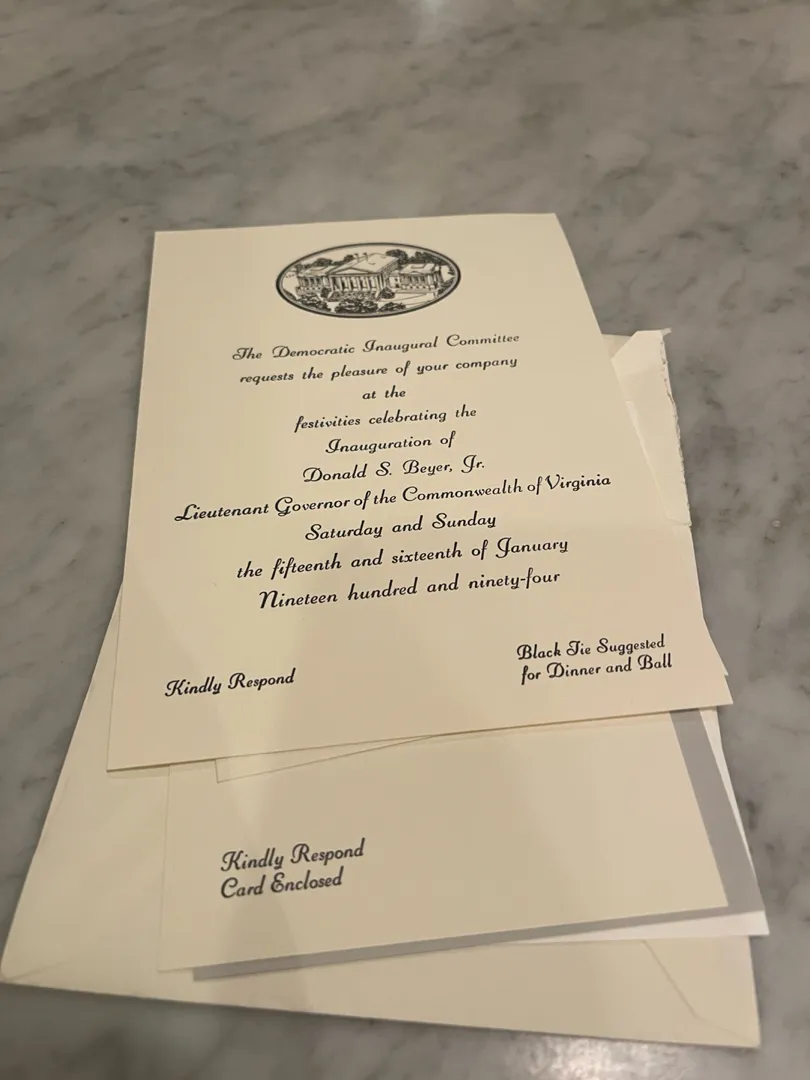 The Democratic Inaugural Committee
requests the pleasure of your company
at the
festivities celebrating the
Inauguration of
Donald S. Beyer, Jr.
Lieutenant Governor of the Commonwealth of Virginia
Saturday and Sunday
the fifteenth and sixteenth of January
Nineteen hundred and ninety-four
Kindly Respond
Black Tie Suggested
for Dinner and Ball
Kindly Respond
Card Enclosed